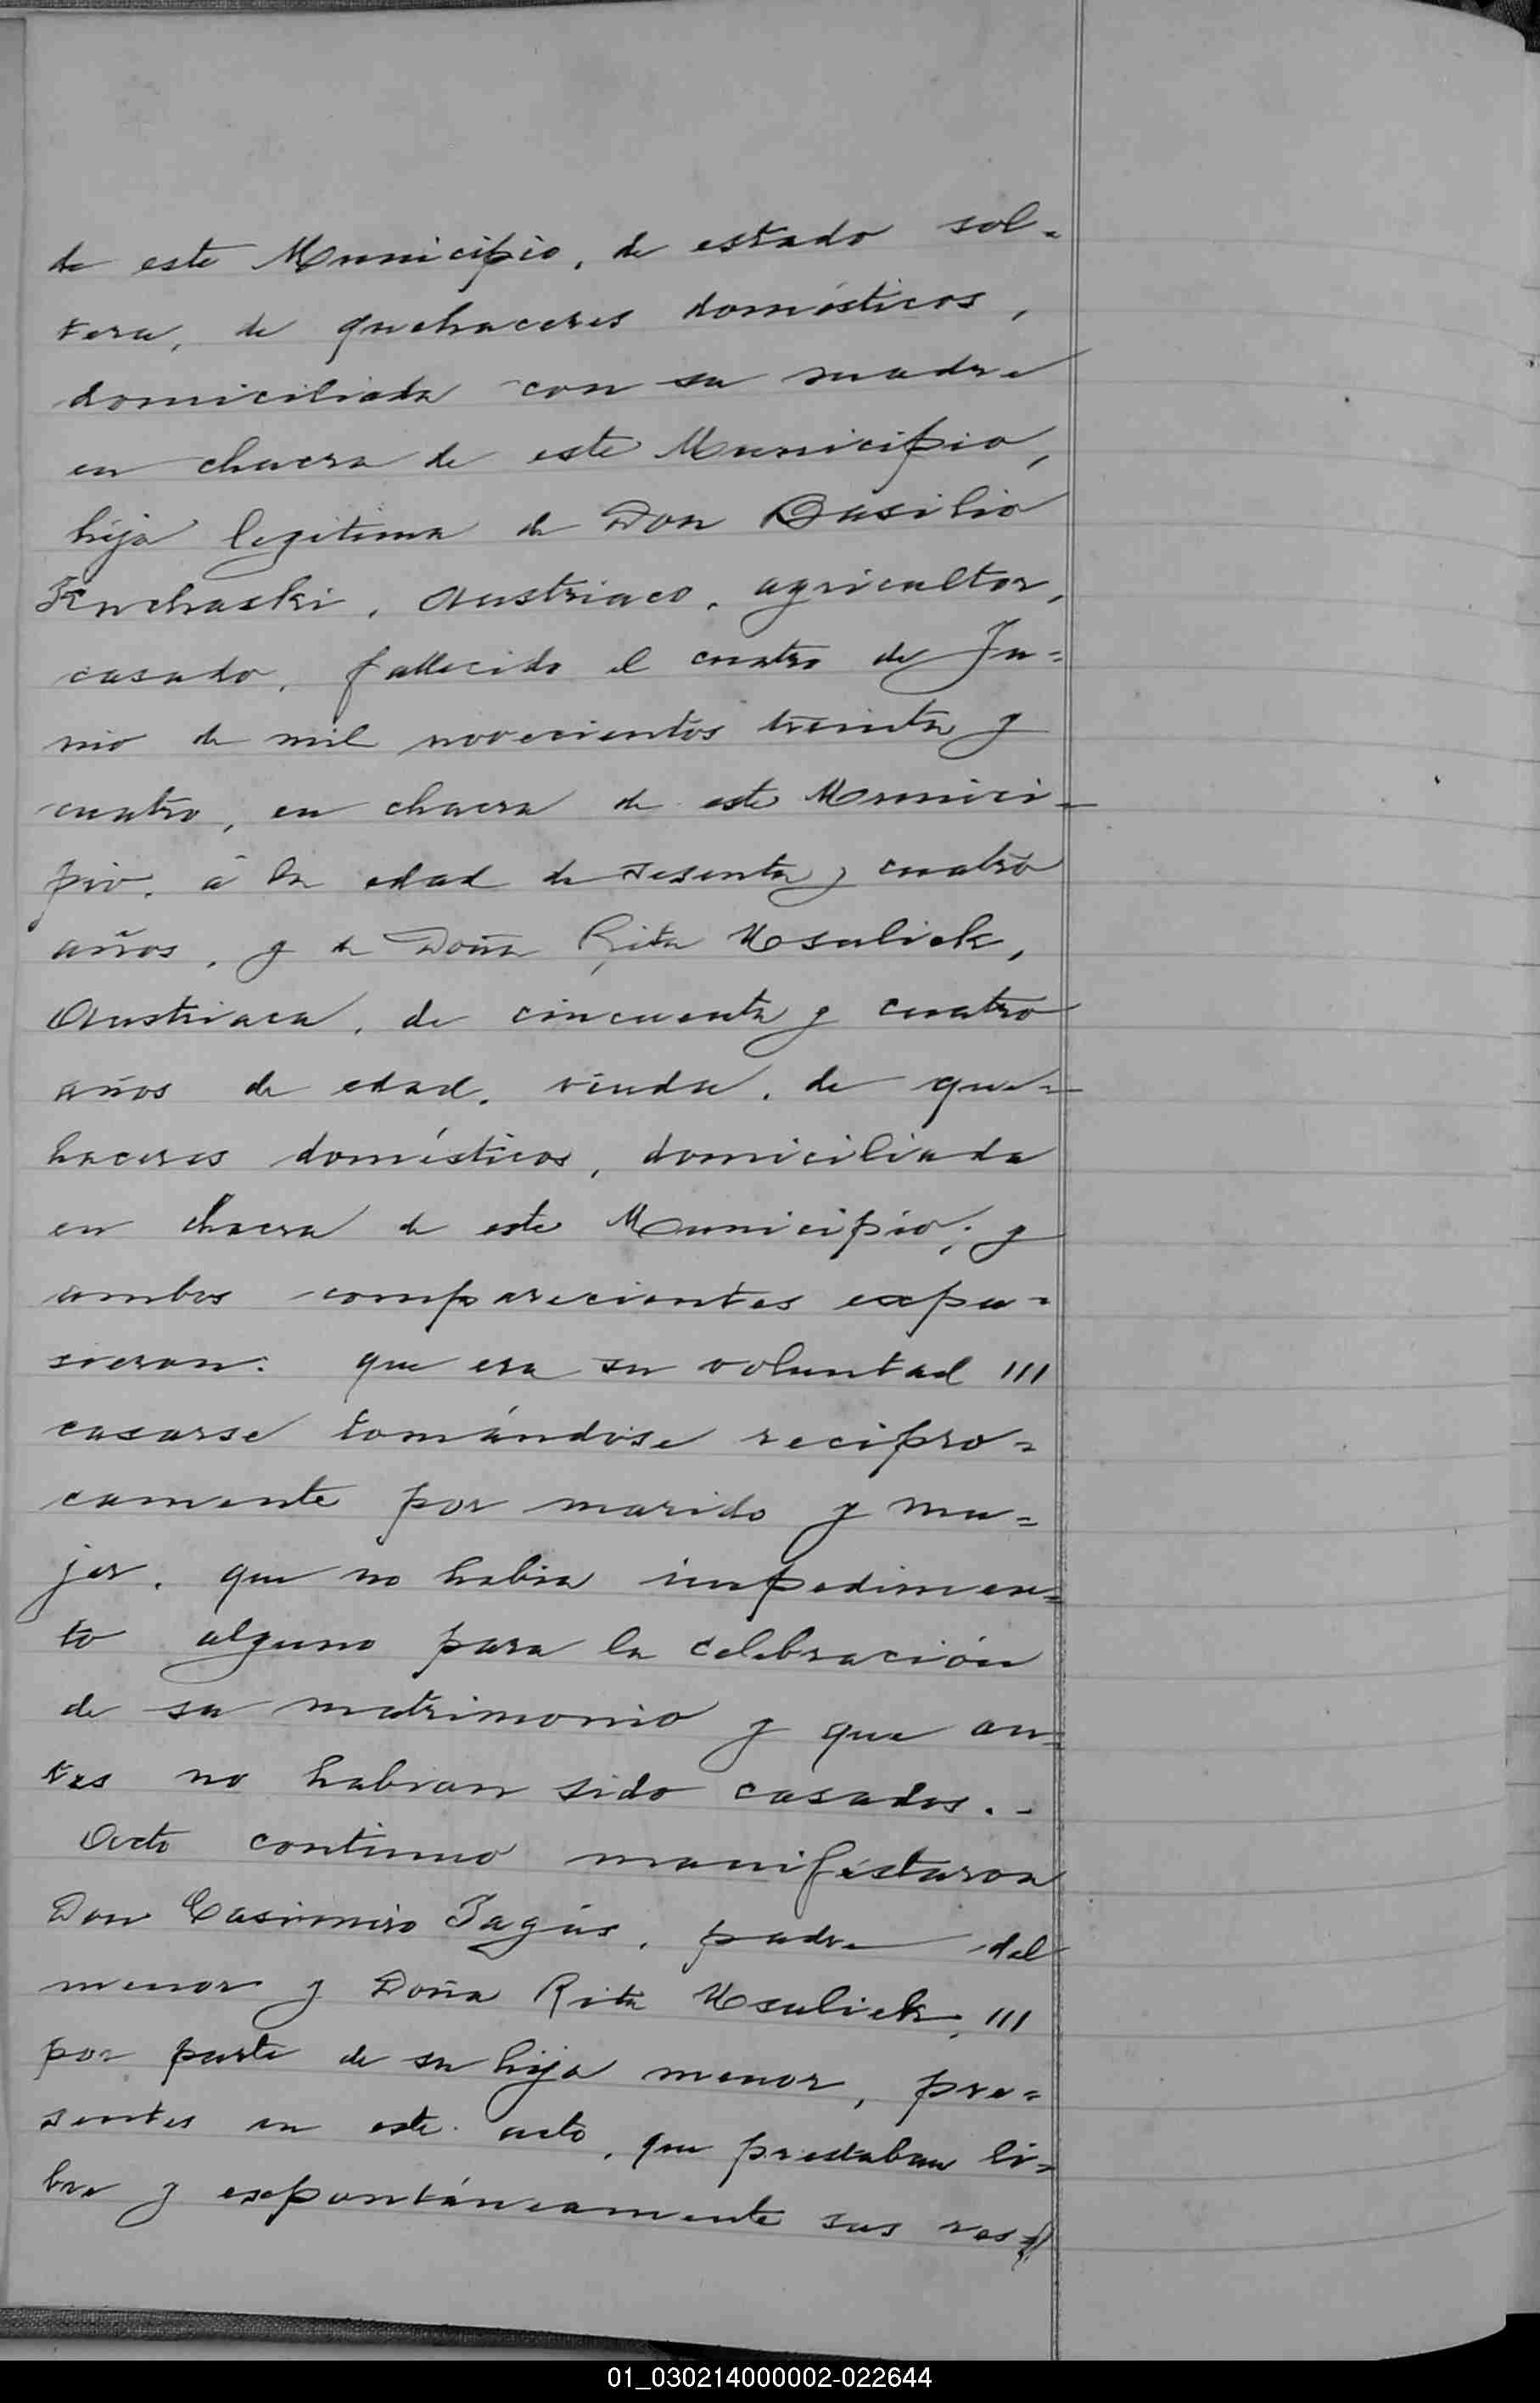 de este Municipio, de estado sol-
tera, de quehaceres domésticos,
domiciliada con su madre
en chacra de este Municipio,
hija legitima de Don Basilio
Kuchaski, Austriaco, agricultor,
casado, fallecido el cuatro de Ju=
nio de mil novecientos treinta y
cuatro, en chacra de este Munici-
pio, á la edad de sesenta y cuatro
años, y de Doña Rita Usaliek,
Austriaca, de cincuenta y cuatro
años de edad, viuda, de que=
haceres domésticos, domiciliada
en chacra de este Municipio; y
ambos comparecientes expu=
sieron: que era su voluntad ///
casarse tomándose recipro=
camente por marido y mu=
jer, que no habia impedimen=
to alguno para la celebración
de su matrimonio y que an=
tes no habian sido casados. -
Acto continuo manifestaron
Don Casimiro Tagús, padre del
menor y Doña Rita Usaliek, ///
por parte de su hija menor, pre=
sentes en este acto, que prestaban li=
bre y espontáneamente sus res=
01_030214000002-022644